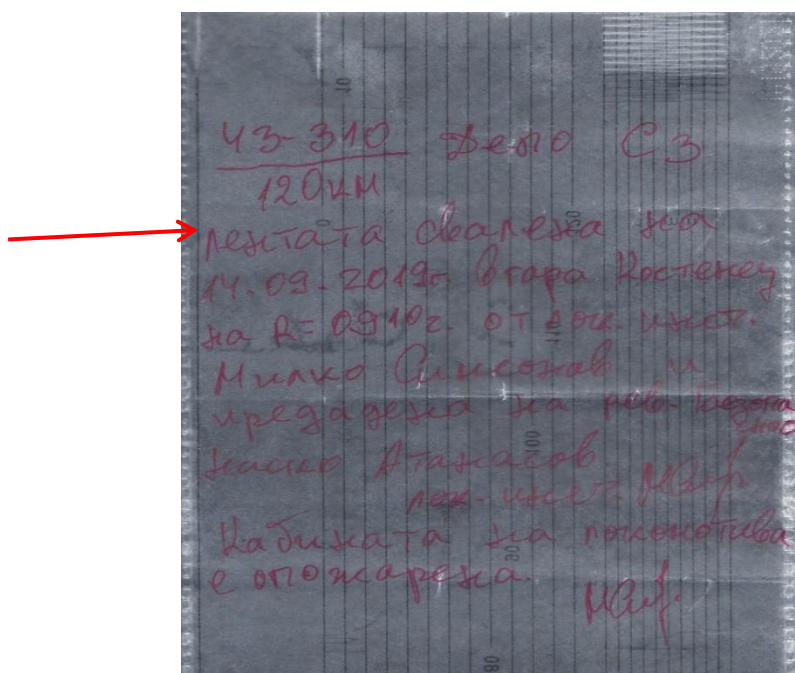 43-310 Депо СЗ
120км
лентата свалена на
14.09.2019г. в гара Костенец
на R= 0910г. от лок. инст.
Милко Симеонов и
предадена на рев.
Наско Атанасов
лок. инст.
Кабината на локомотива
е опожарена.